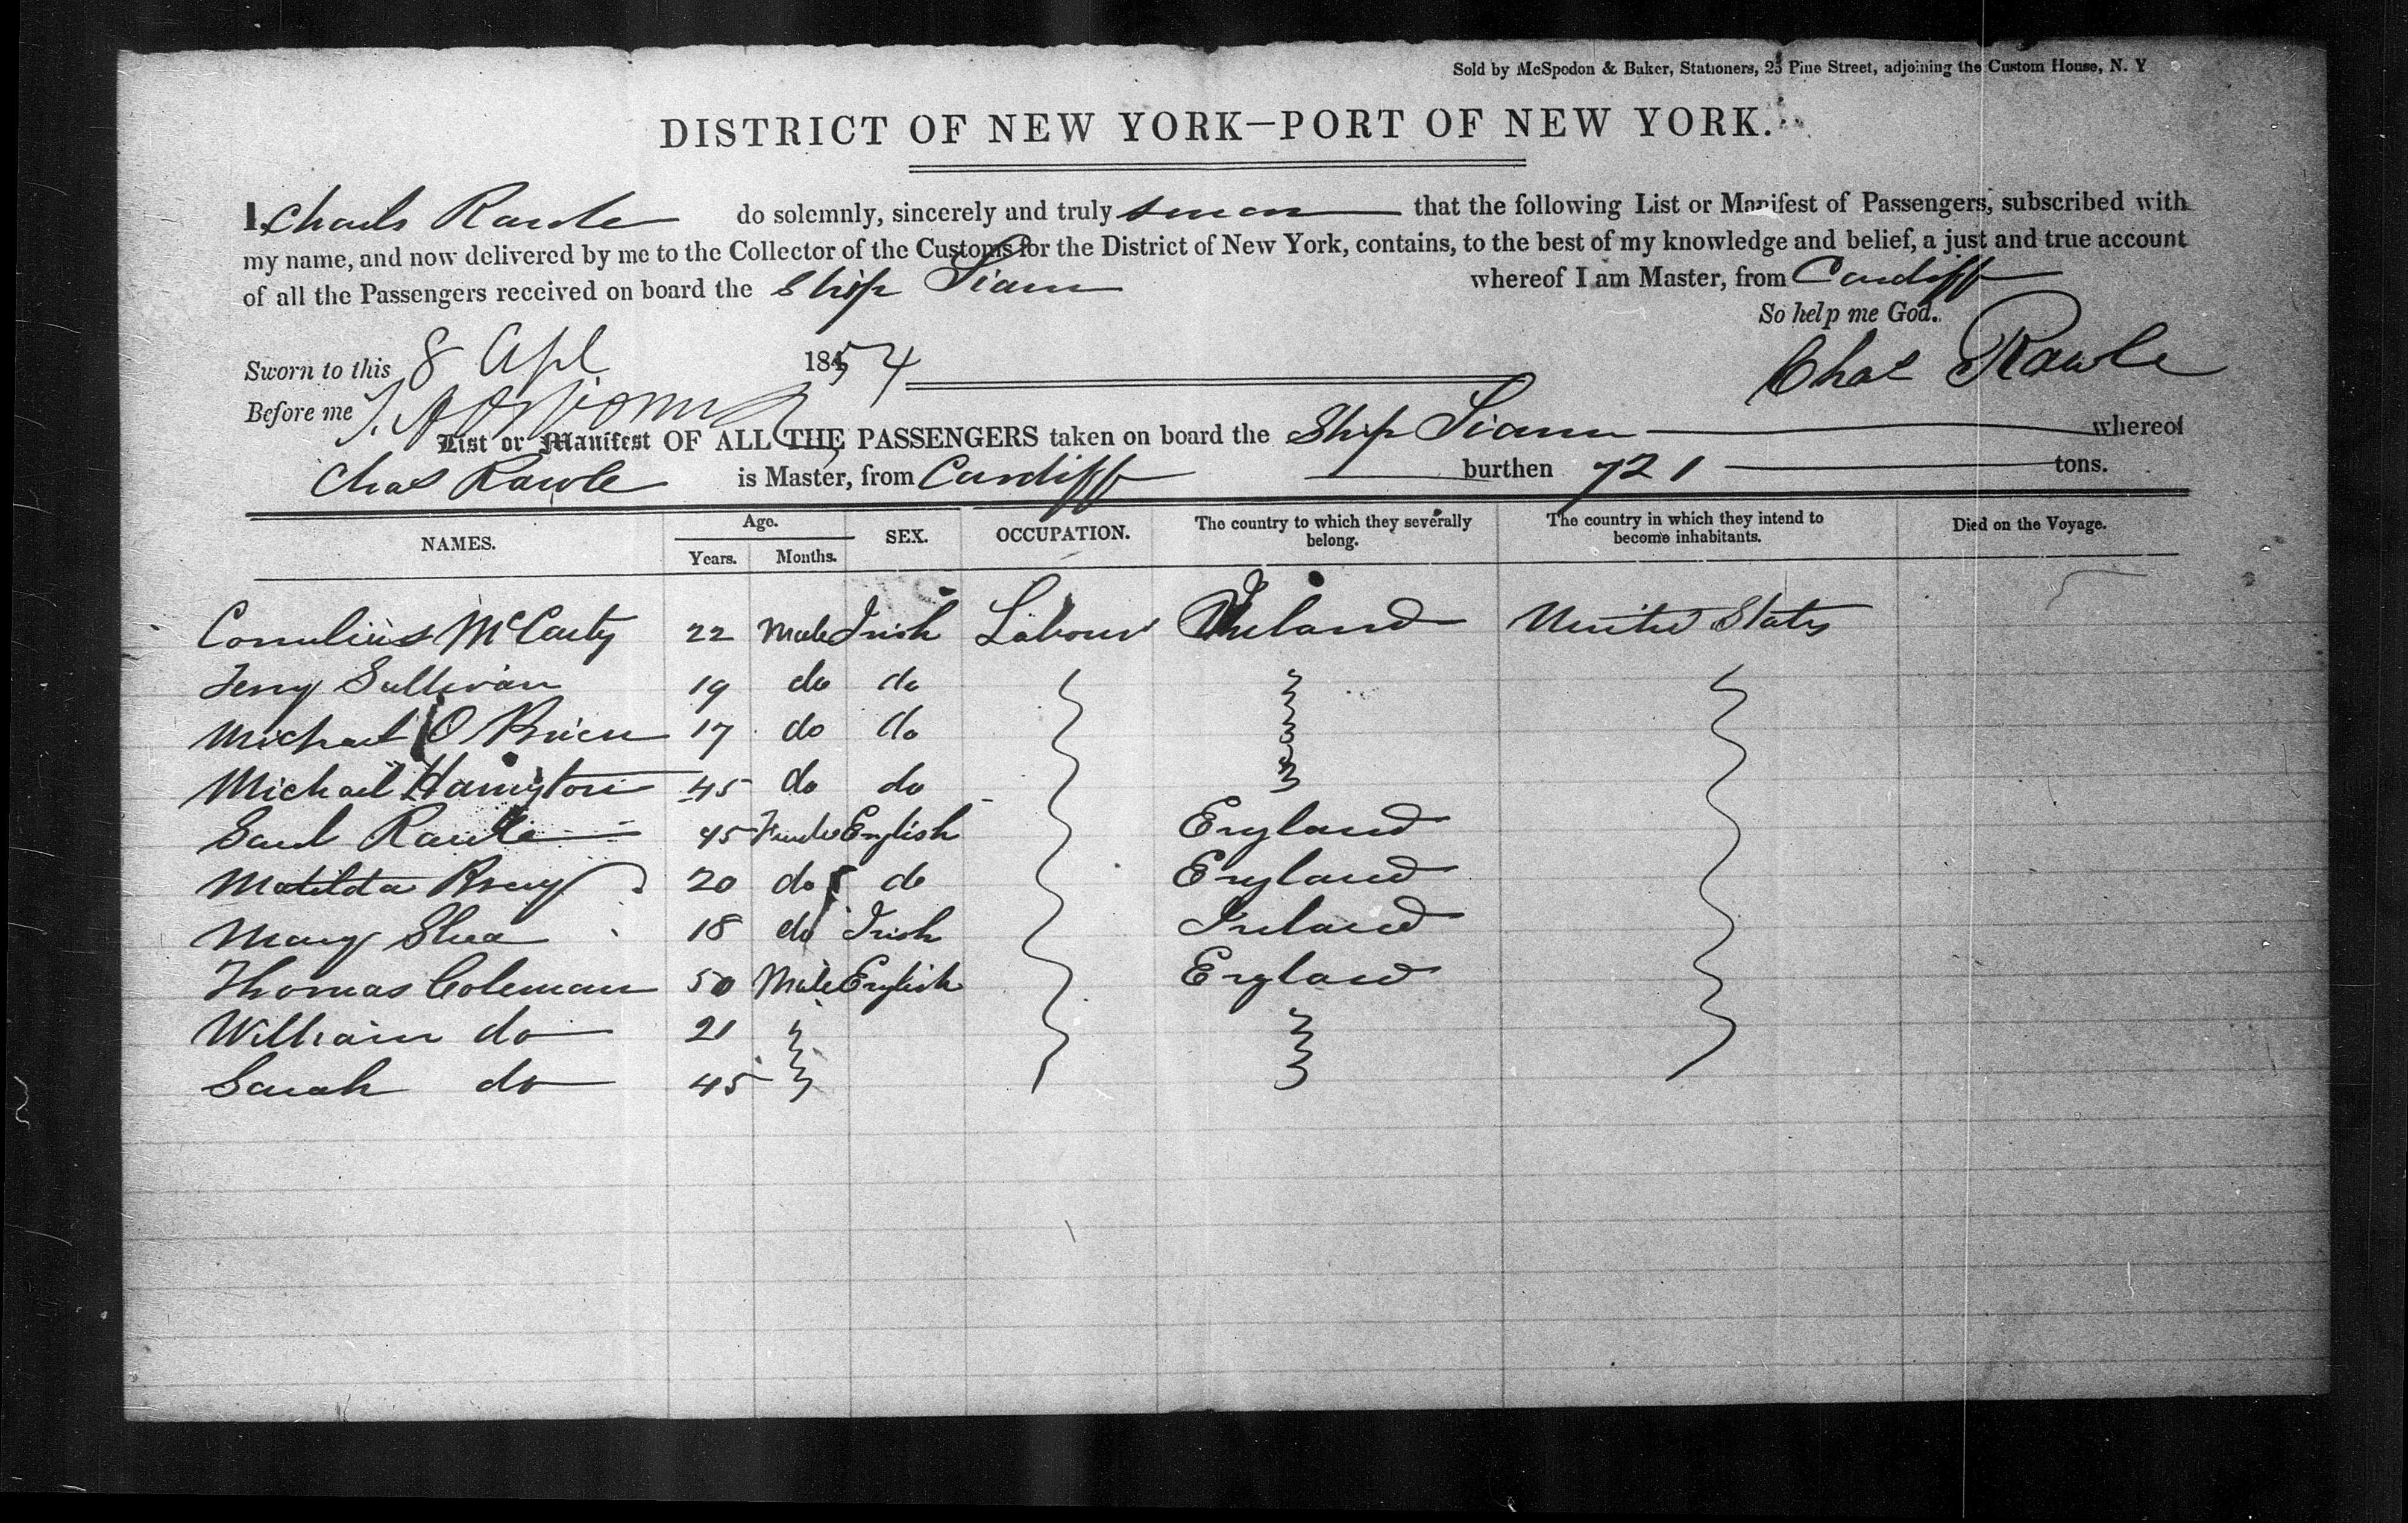 Sold by McSpedon & Baker, Stationers, 25 Pine Street, adjoining the Custom House, N. Y
DISTRICT OF NEW YORK—PORT OF NEW YORK.
I, Charls Rawle do solemnly, sincerely and truly swear that the following List or Manifest of Passengers, subscribed with
my name, and now delivered by me to the Collector of the Customs for the District of New York, contains, to the best of my knowledge and belief, a just and true account
of all the Passengers received on board the Ship Siam whereof I am Master, from Cardiff
So help me God.
Sworn to this 8 Apl 1854 Chas Rawle
Before me
List or Manifest OF ALL THE PASSENGERS taken on board the Ship Siam whereof
Chas Rawle is Master, from Cardiff burthen 721 tons.
NAMES. Age. Years. Months. SEX. OCCUPATION. The country to which they severally belong. The country in which they intend to become inhabitants. Died on the Voyage.
Cornelius McCarty 22 Male Irish Labour Ireland United States
Jerry Sullivan 19 do do
Michael O Brien 17 do do
Michael Harrington 45 do do
Rawle 45 Female English England
Matilda 20 do do England
Mary Shea 18 do Irish Ireland
Thomas Coleman 50 Male English England
William do 21
Sarah do 45